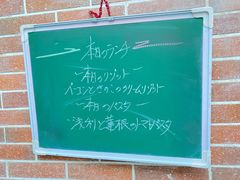 本日のランチ
ー本日のリゾットー
ベーコンときのこのクリームリゾット
ー本日のパスタ
浅利と蓮根のトマトパスタ